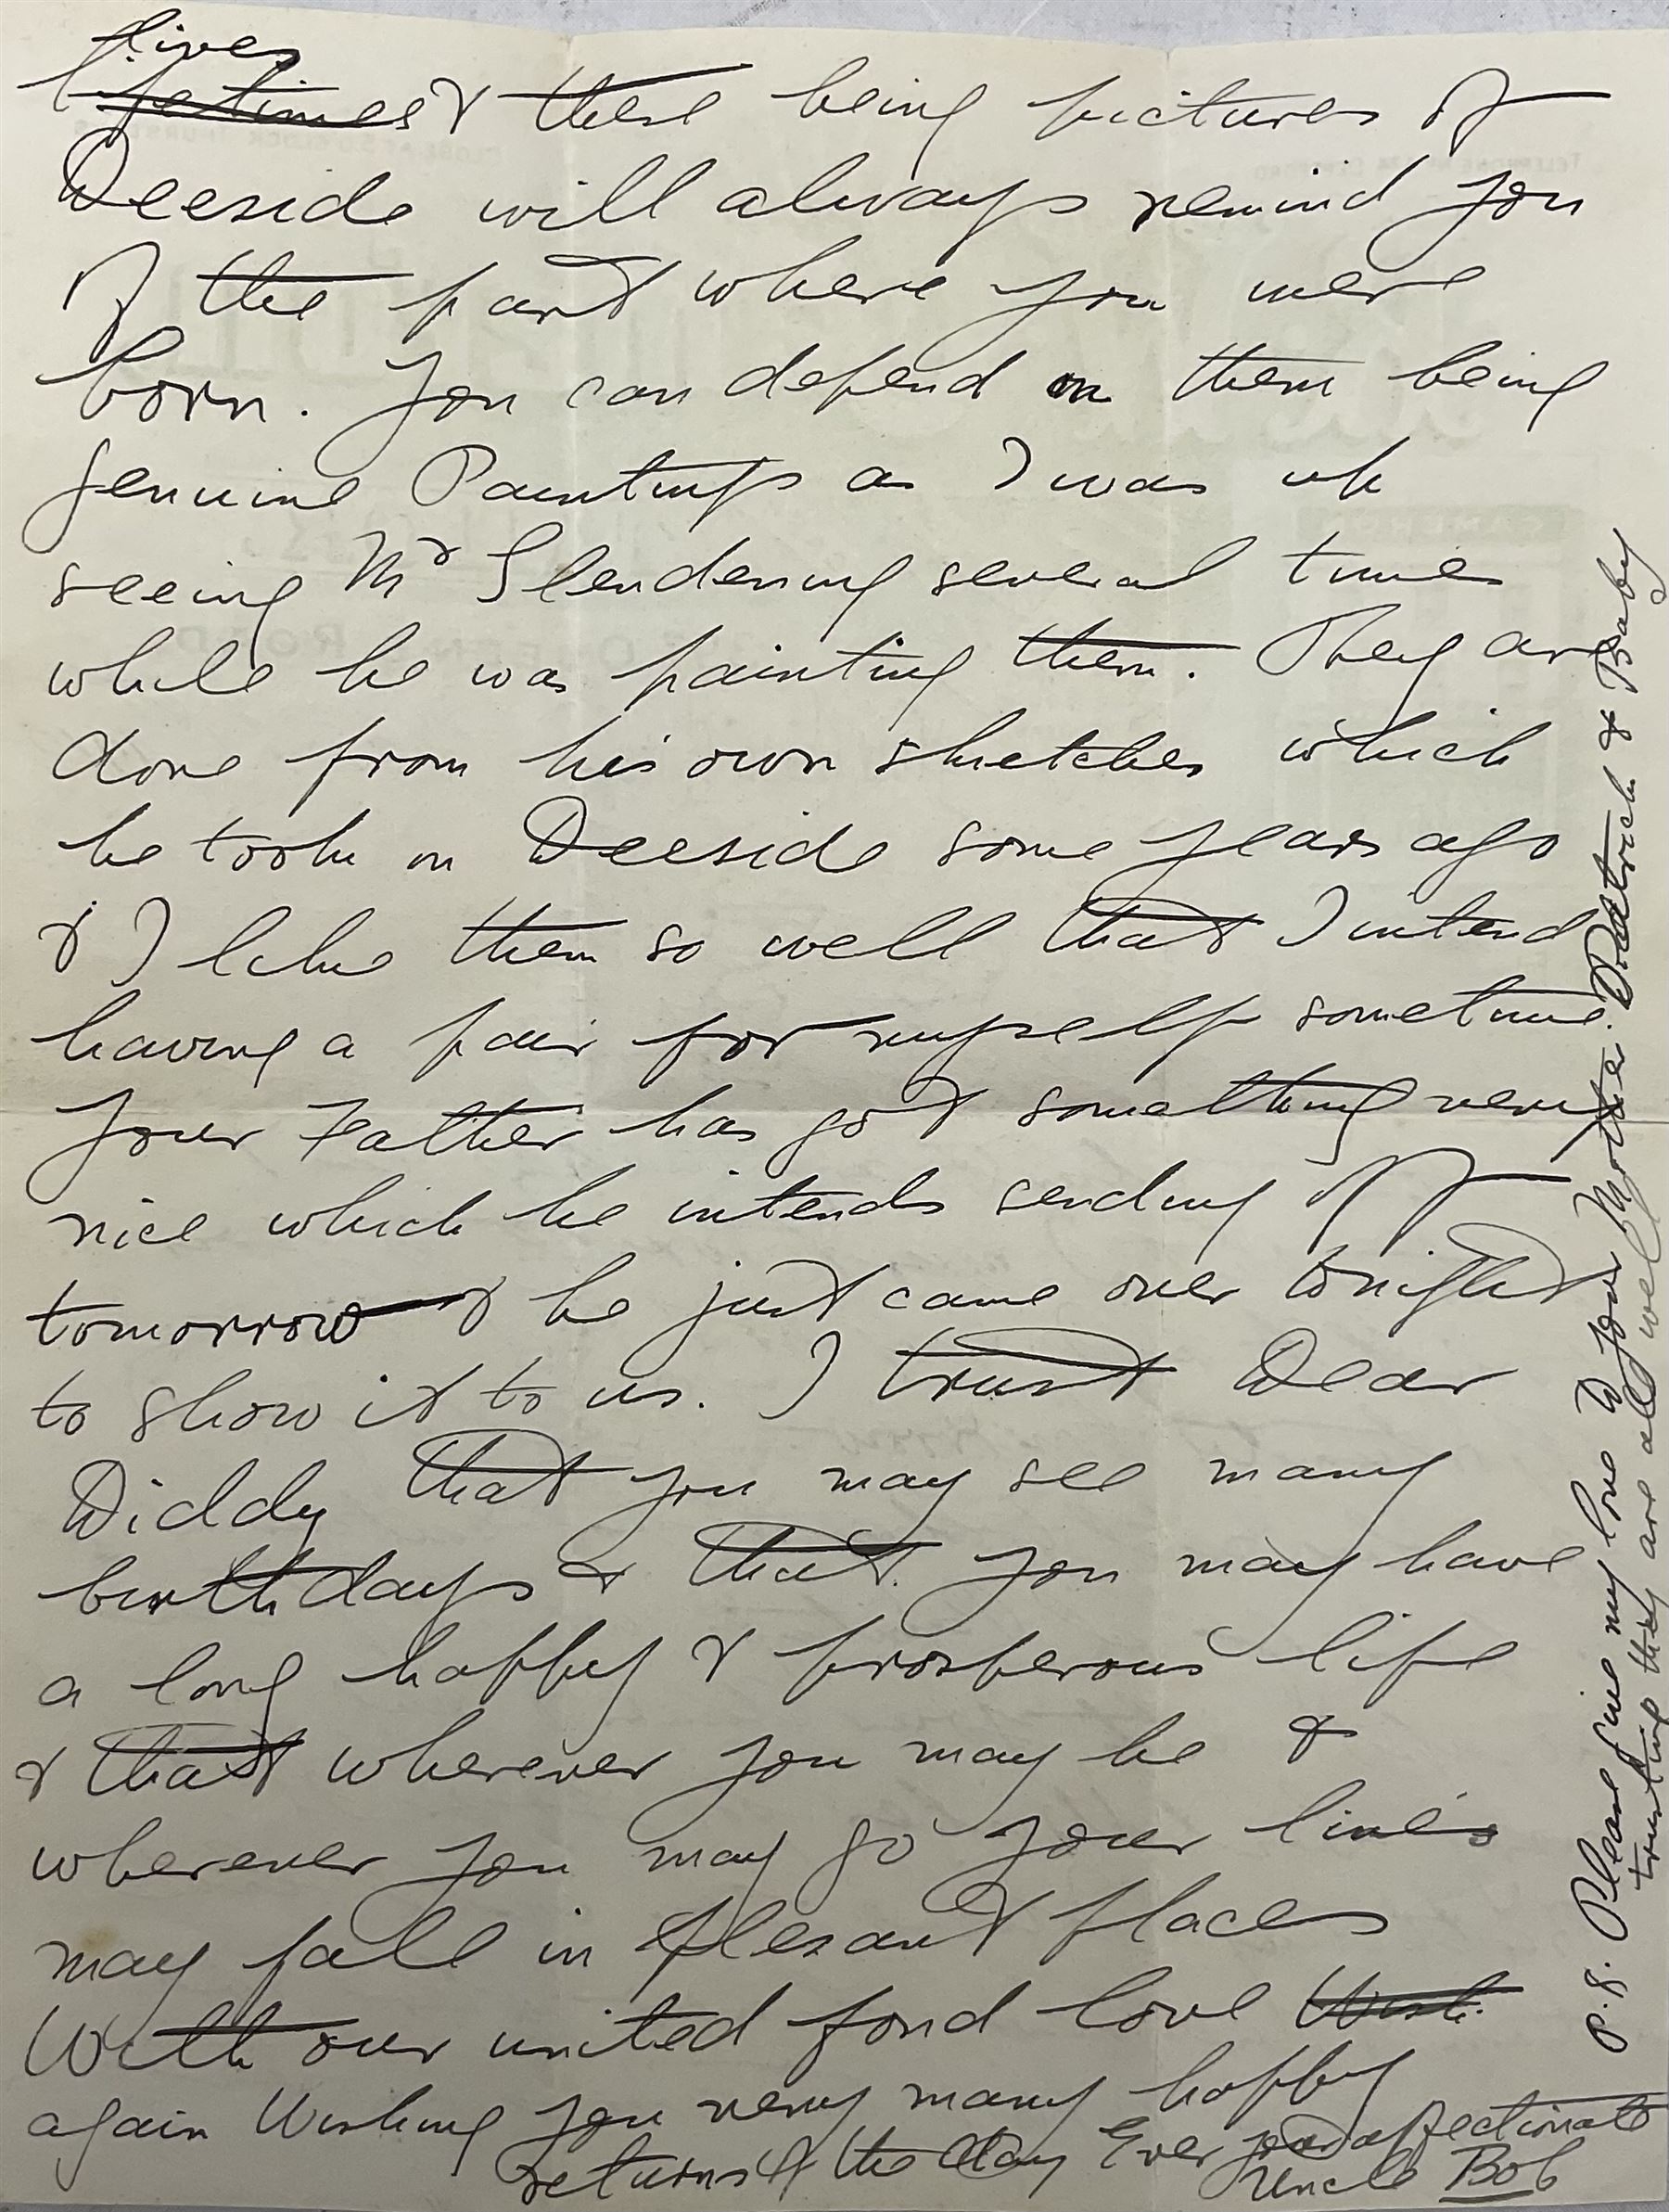 lives
lifetimes & these being pictures of
Deeside will always remind you
of the part where you were
born. You can depend on them being
genuine Paintings as I was up
seeing Mr Glendening several times
while he was painting them. They are
done from his own sketches which
he took on Deeside some years ago
& I like them so well that I intend
having a pair for myself sometime.
Your Father has got something very
nice which he intends sending off
tomorrow & he just came over tonight
to show it to us. I trust Dear
Diddy that you may see many
birthdays & that you may have
a long happy & prosperous life
& that wherever you may be &
wherever you may go your lines
may fall in plesant places
With our united fond love Wish
again Wishing you very many happy
returns of the day Ever your affectionate
Uncle Bob
P.S. Please give my love to your Mother, Patrick & Baby
trusting they are all well